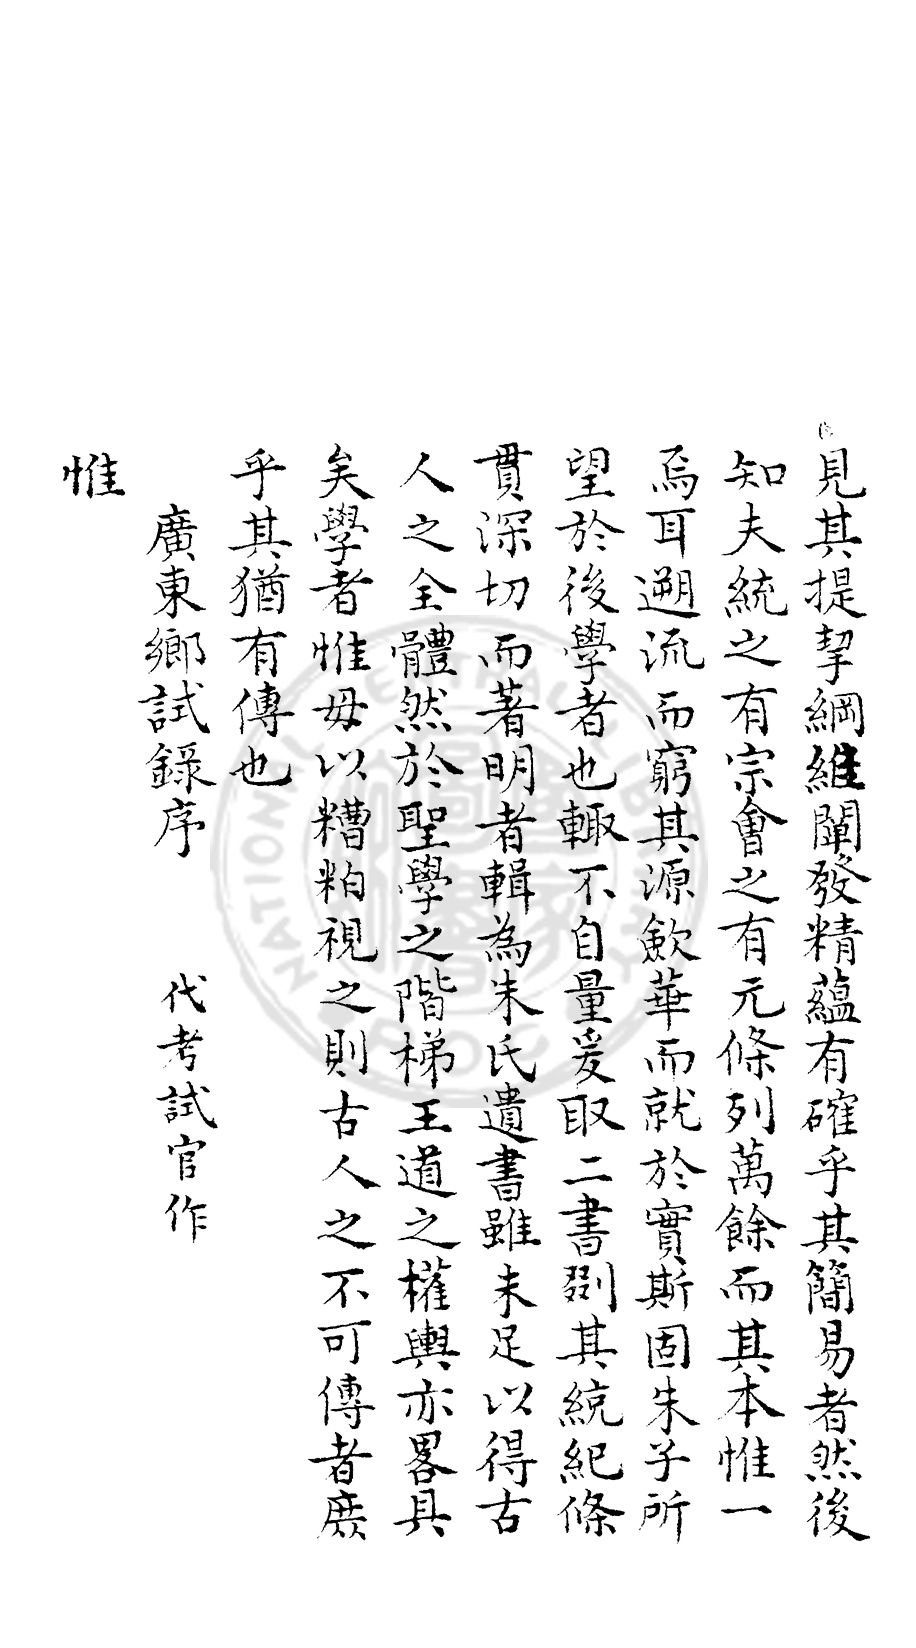 見其提挈綱維闡發精蘊有確乎其簡易者然後
知夫統之有宗會之有元條列萬餘而其本惟一
焉耳遡流而窮其源歛華而就於實斯固朱子所
望於後學者也輙不自量爰取二書劉其統紀條
貫深切而著明者輯為朱氏遺書雖未足以得古
人之全體然於聖學之階梯王道之權輿亦畧具
矣學者惟毋以糟粕視之則古人之不可傳者庶
乎其猶有傳也
廣東鄉試錄序 代考試官作
惟
NATIONAL CENTRAL LIBRARY
ROC